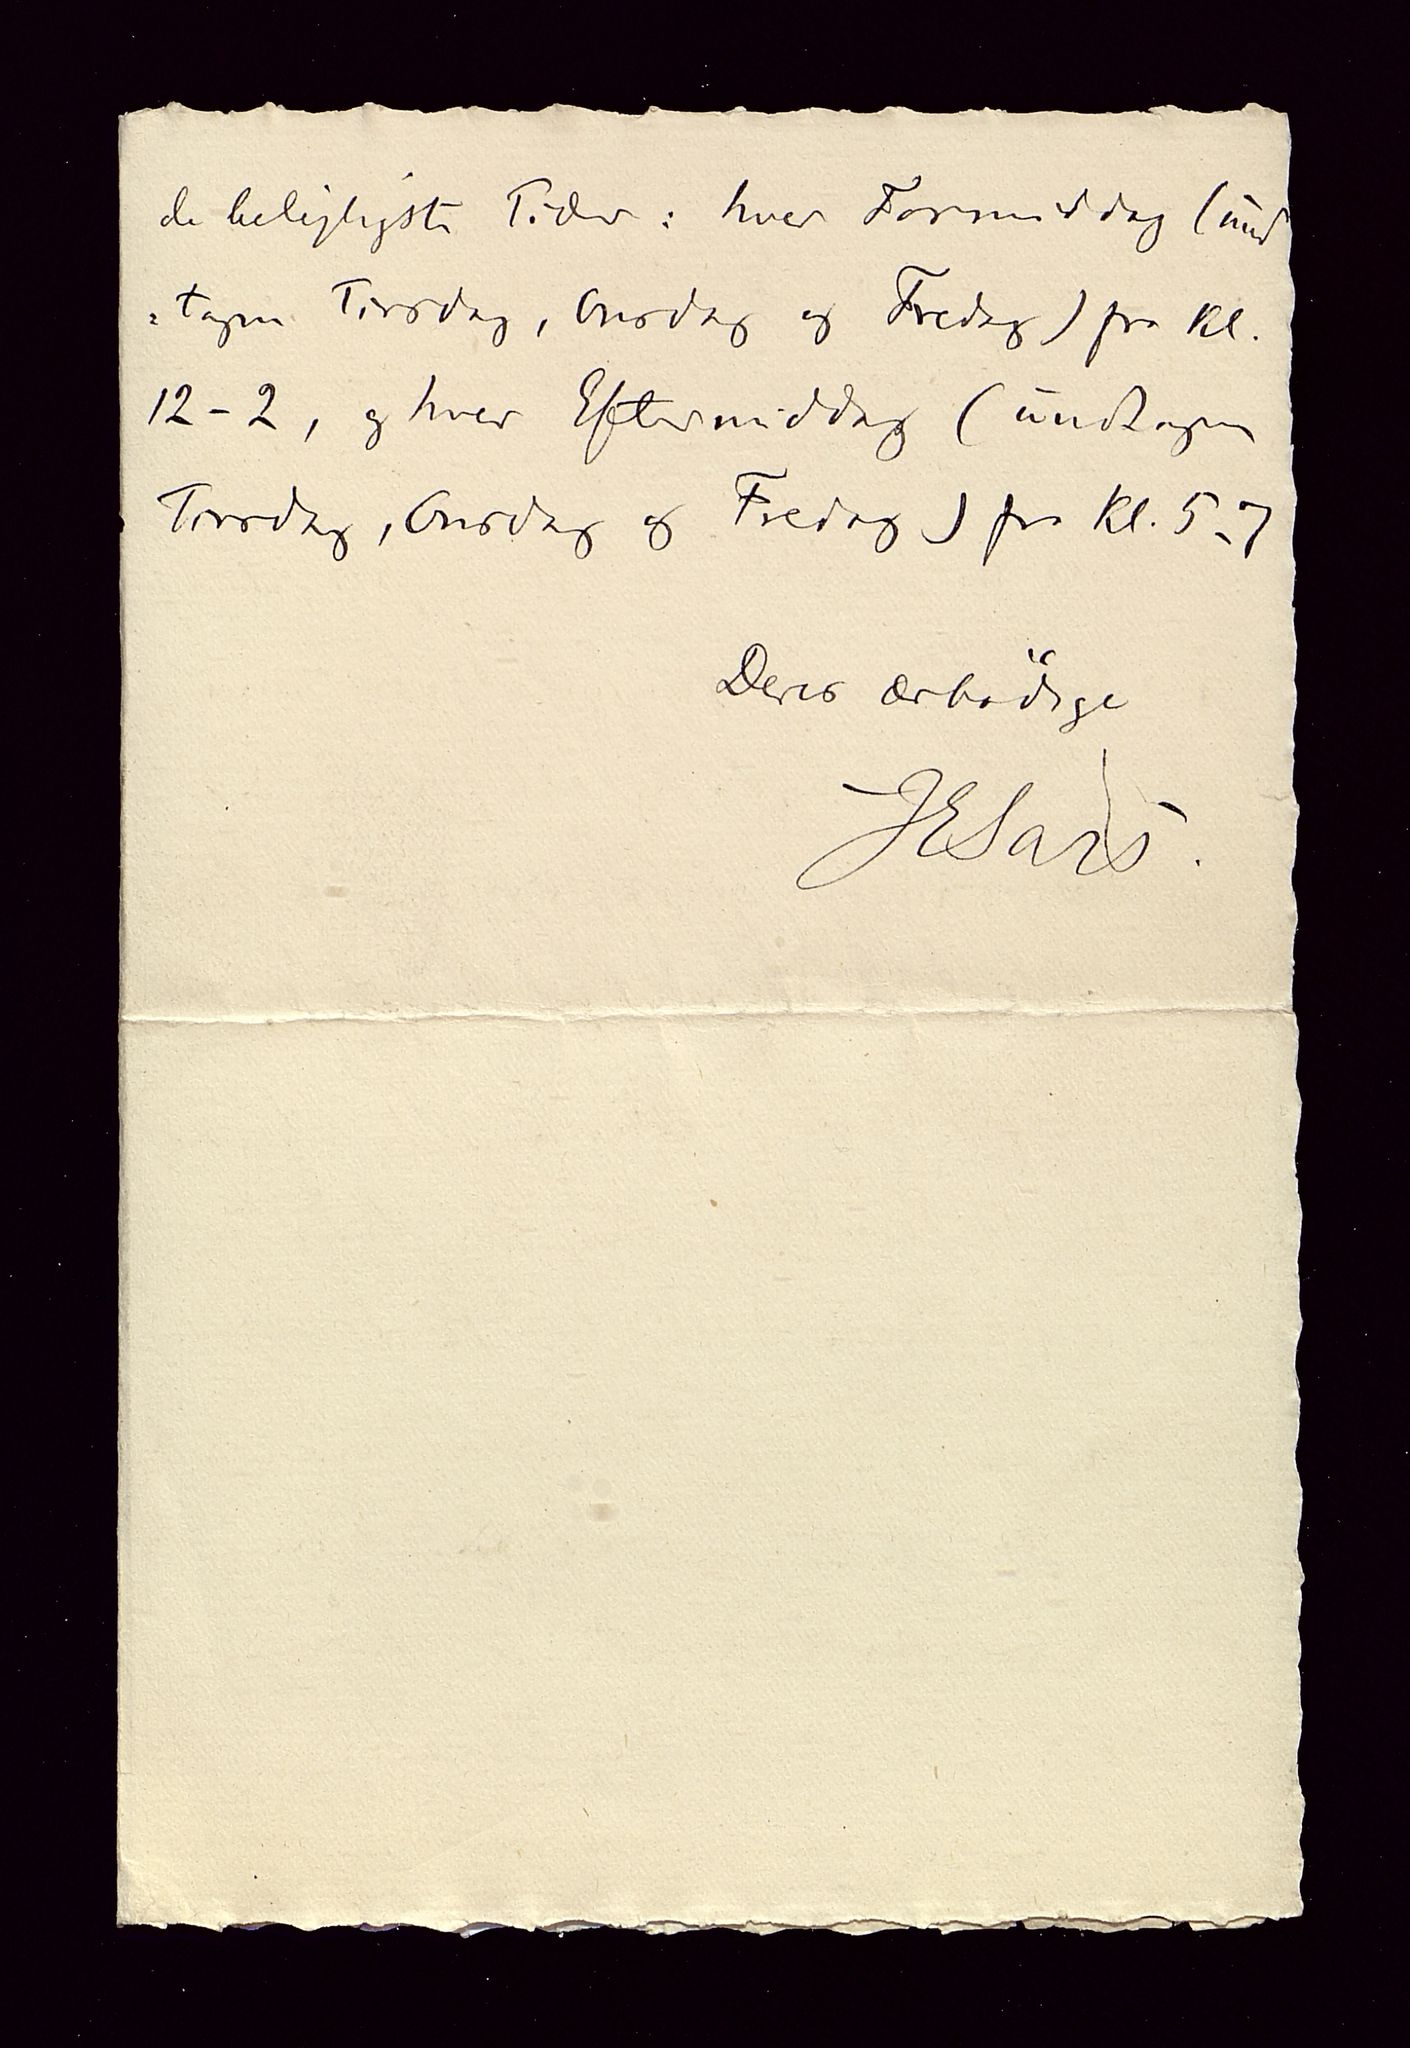 de belejligste Tider: hver Formiddag (und
=tagen Tirsdag, Onsdag og Fredag) fra Kl.
12-2, og hver Eftermiddag (undtagen
Tirsdag, Onsdag og Fredag) fra Kl. 5-7
Deres ærbödige
JESars.